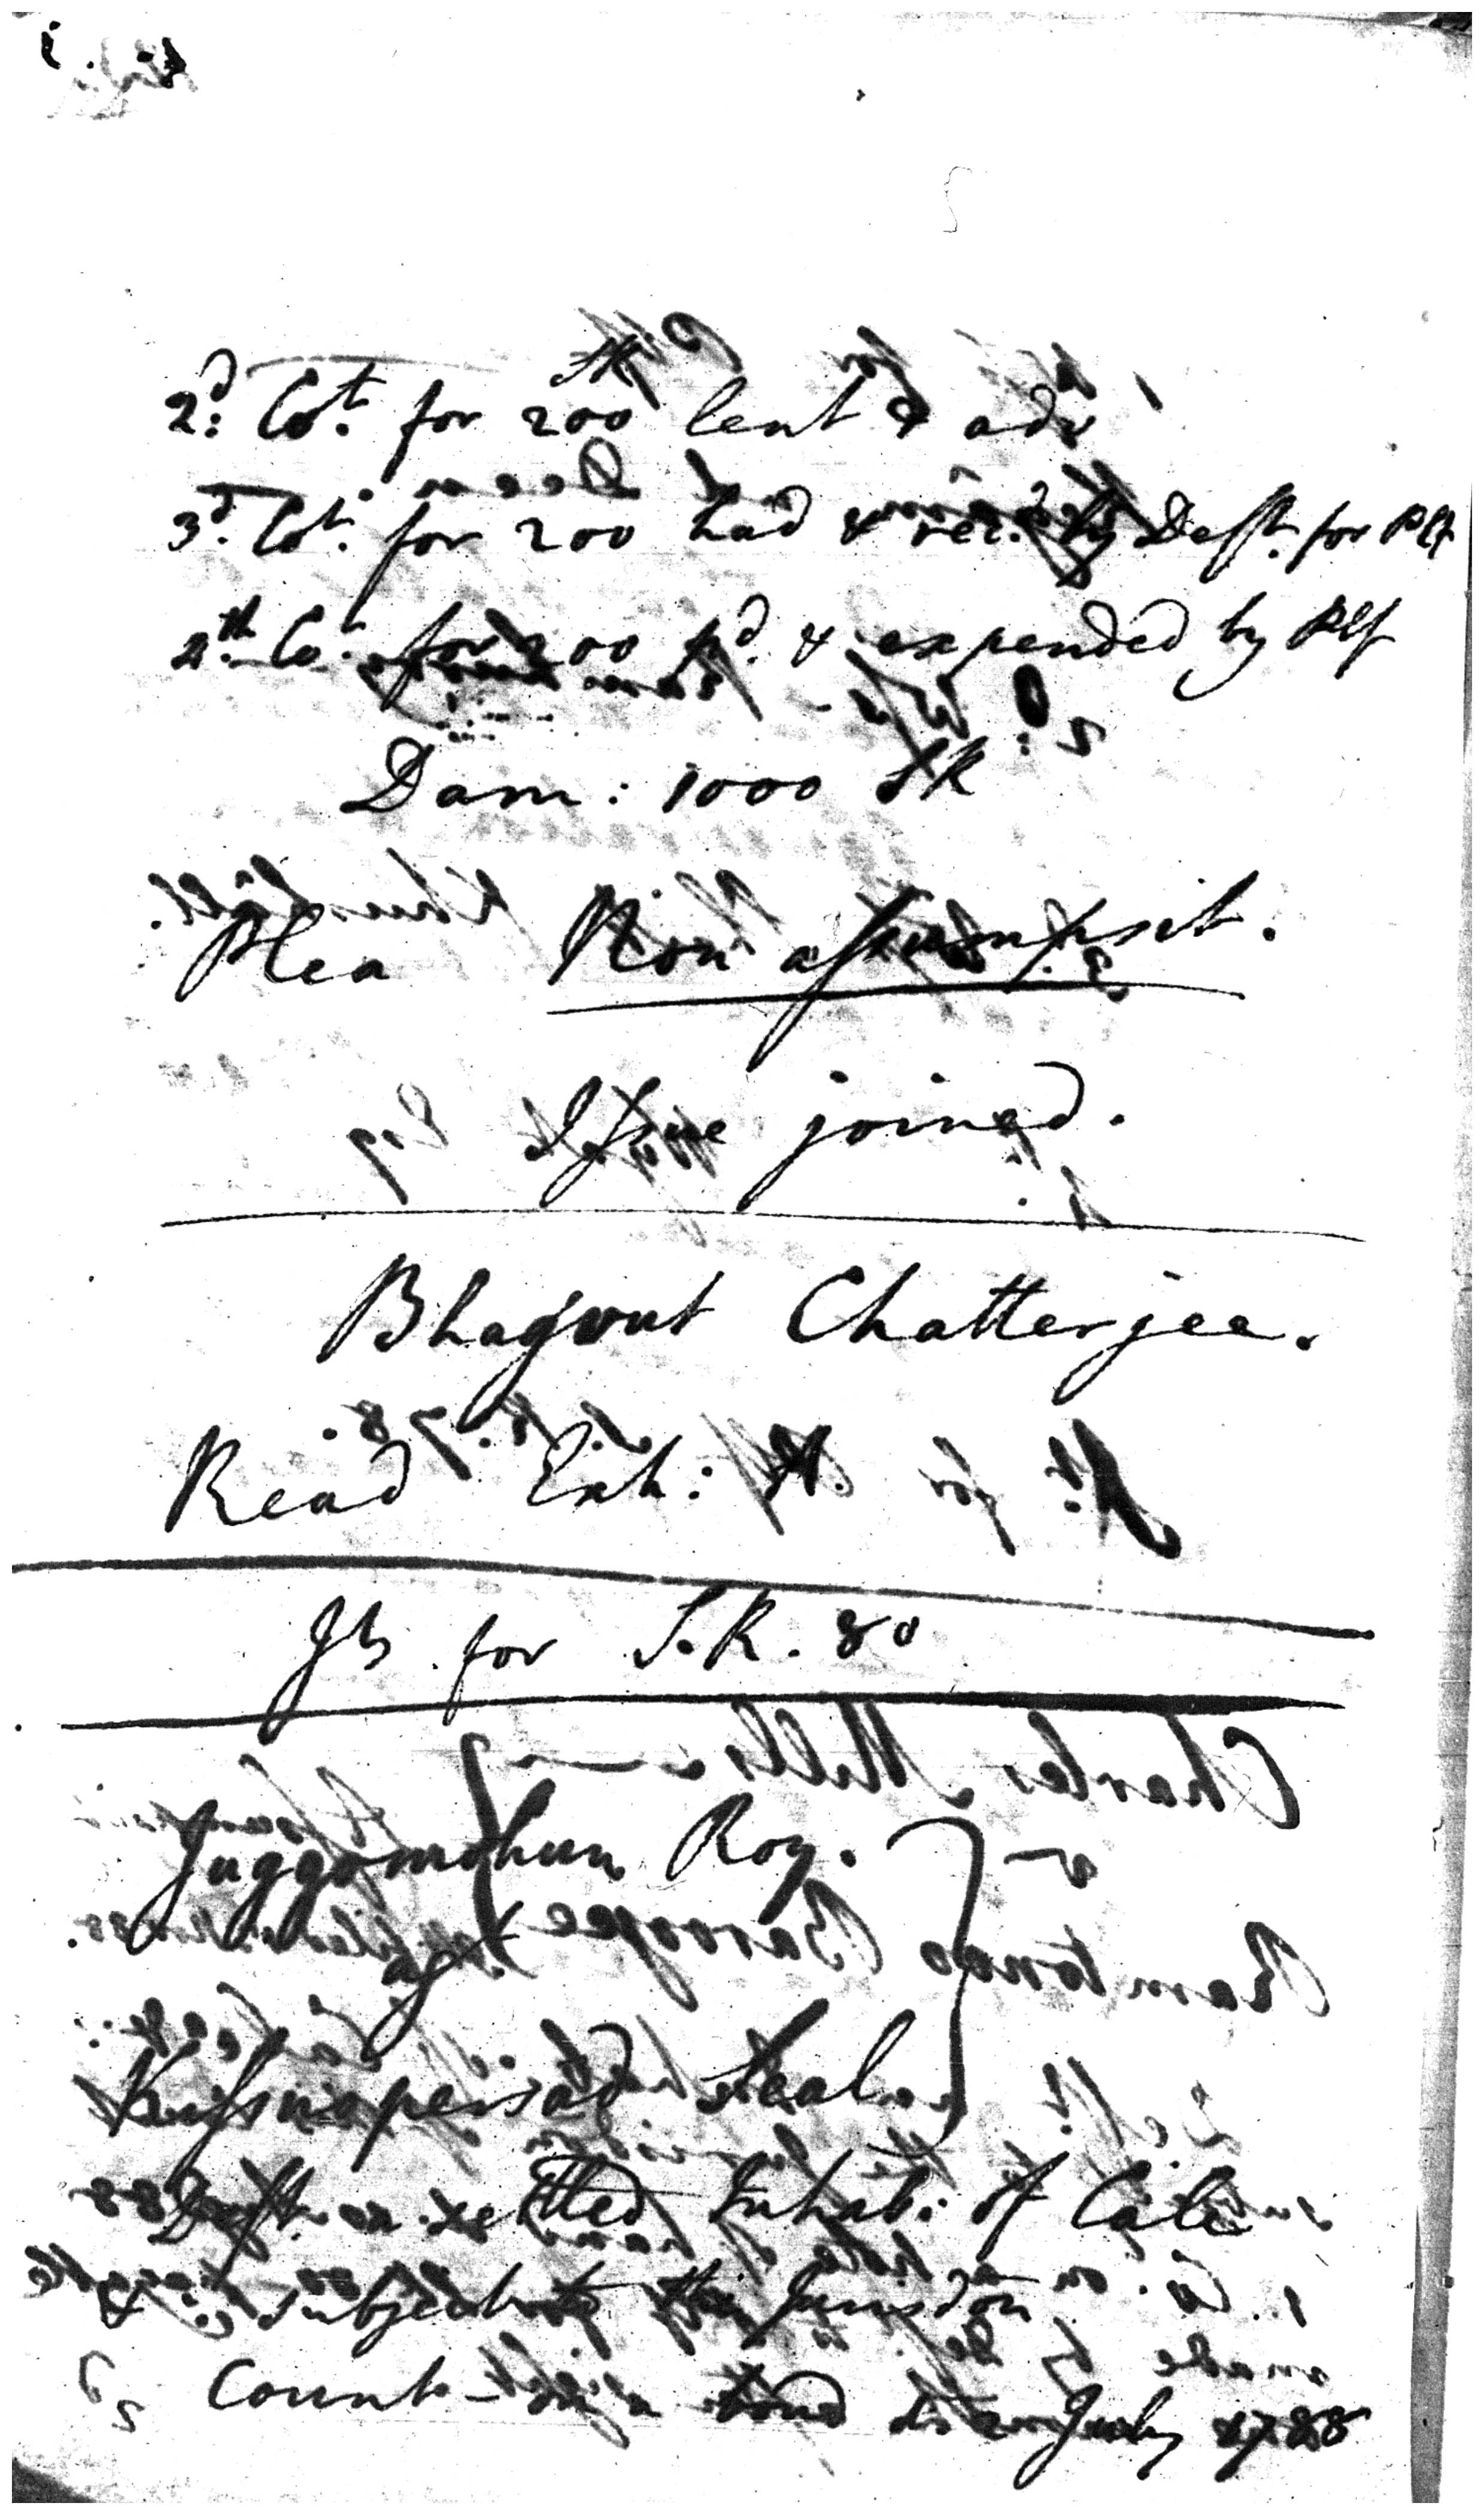 2d: Cot. for 200 SR lent & adv
3d. Cot. for 200 had & rec.d by Deft. for Plf
2th. Co.t for 200 pd. & expended by Plf
Dam: 1000 SR
Plea Non assumpsit.
Issue joined.
Bhagvut Chatterjee.
Read Exh: A
Jt. for S.R. 80
Juggomohun Roy.
agt
Kissnapersad Seal
Deft. a settled Inhab: of Calc
& subject to the Jurisdon
Count bond July 1788